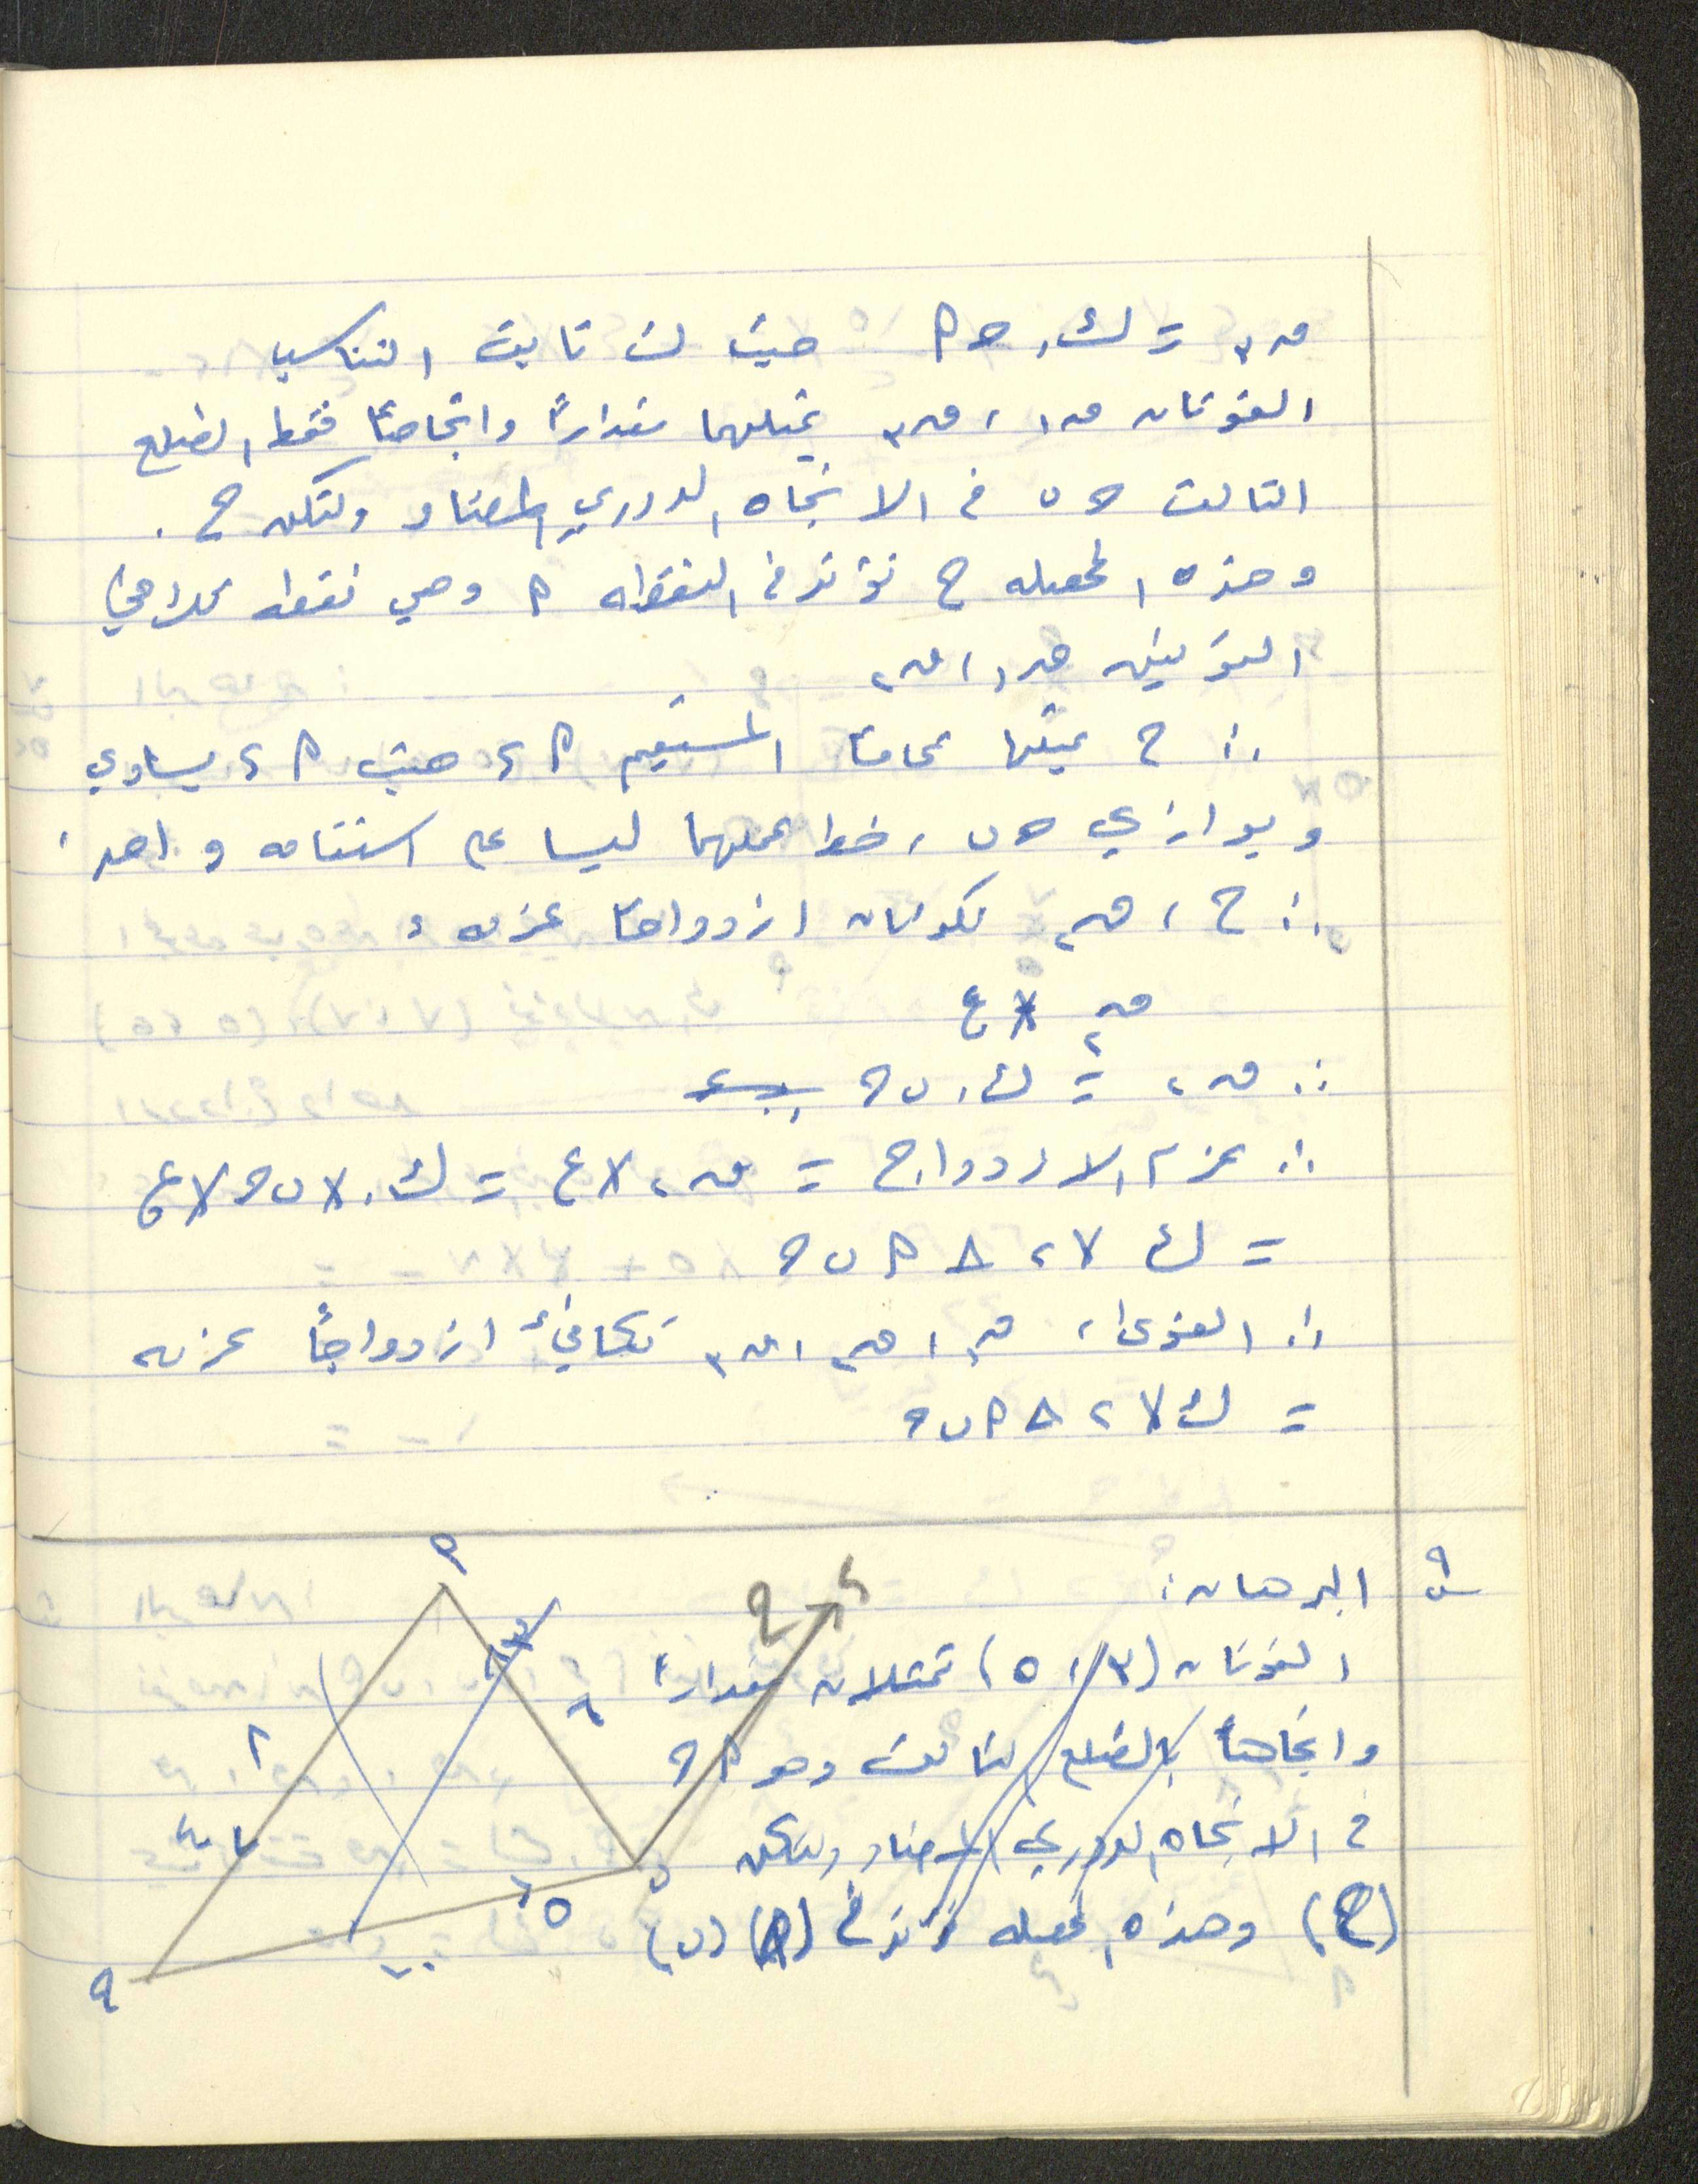 ق٣ = ك . حـ م حيث ك ثابت التناسب
القوتان ق١ ، ق٣ يمثلهما مقداراً واتجاهاً فقط الضلع
الثالث حـ ں في الاتجاه الدوري المضاد ولتكن ح .
وهذه المحصله ح تؤثر في النقطه م وهي نقطه تلاقي
القوتين ق١ ، ق٣
∴ ح يمثلها تماماً المستقيم م ء حيث م ء يساوي
ويوازي حـ ں ، خطا عملهما ليسا على استقامه واحده
∴ ح ، ق٢ تكونان ازدواجاً عزمه
ق٢ × ع
∴ ق٢ = ك . ں حـ
∴ عزم الازدواج = ق٢ × ع = ك . × ں حـ × ع
= ك × ٢ ∆ م ں حـ
∴ القوى ق١ ، ق٢ ، ق٣ تكافئ ازدواجاً عزمه
= ك × ٢ ∆ م ں حـ
البرهان :
القوتان (٣ ، ٥) تمثلان مقداراً
واتجاهاً بالضلع الثالث وهو م حـ
في الاتجاه الدوري المضاد ولتكن
(ح) وهذه المحصله تؤثر في (ں)
م
ح
ء
٦
٥
ں
حـ